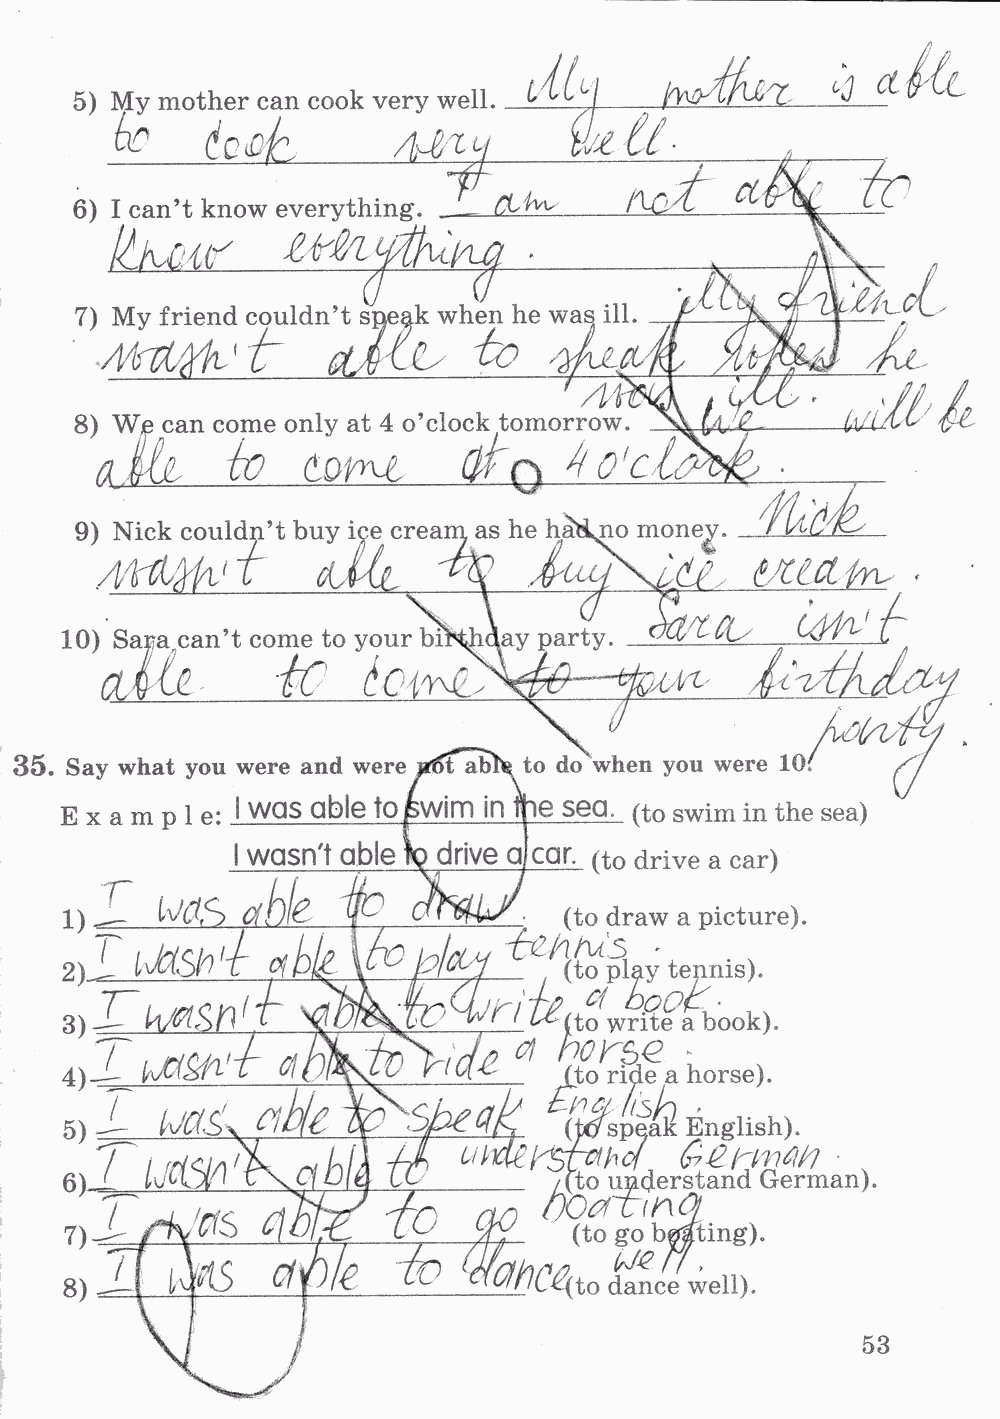 5) My mother can cook very well. My mother is able
to cook very well.
6) I can't know everything. I am not able to
know everything.
7) My friend couldn't speak when he was ill. My friend
wasn't able to speak when he
was ill.
8) We can come only at 4 o'clock tomorrow. We will be
able to come at 4 o'clock.
9) Nick couldn't buy ice cream as he had no money. Nick
wasn't able to buy ice cream.
10) Sara can't come to your birthday party. Sara isn't
able to come to your birthday
party.
35. Say what you were and were not able to do when you were 10.
Example: I was able to swim in the sea. (to swim in the sea)
I wasn't able to drive a car. (to drive a car)
1) I was able to draw. (to draw a picture).
2) I wasn't able to play tennis. (to play tennis).
3) I wasn't able to write a book. (to write a book).
4) I wasn't able to ride a horse. (to ride a horse).
5) I was able to speak English. (to speak English).
6) I wasn't able to understand German. (to understand German).
7) I was able to go boating (to go boating).
8) I was able to dance well. (to dance well).
53